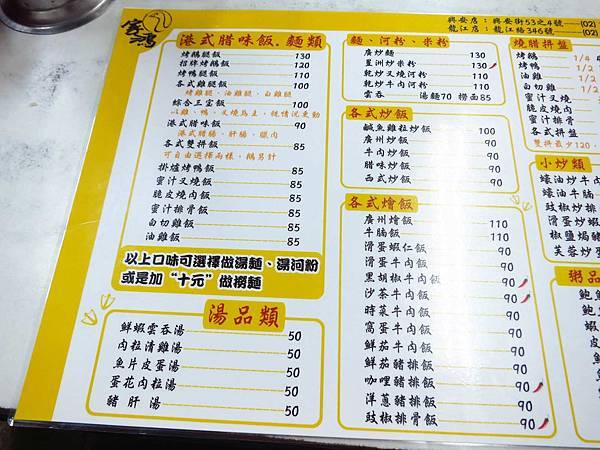 興安店：興安街53之4號
(02)
龍江店：龍江路346號
(02)
港式腊味飯.麵類
烤鵝腿飯 130
招牌烤鵝飯 120
烤鴨腿飯 110
各式雞腿飯 100
烤雞腿、油雞腿、白雞腿
綜合三寶飯 100
以雞、鴨、叉燒為主，視情況更動
港式腊味飯 90
港式腊腸、肝腸、臘肉
各式雙拼飯 85
可自由選擇兩樣，鵝另計
掛爐烤鴨飯 85
蜜汁叉燒飯 85
脆皮燒肉飯 85
蜜汁排骨飯 85
白切雞飯 85
油雞飯 85
以上口味可選擇做湯麵、湯河粉
或是加“十元”做撈麵
湯品類
鮮蝦雲吞湯 50
肉拉清雞湯 50
魚片皮蛋湯 50
蛋花肉拉湯 50
豬肝湯 50
麵、河粉、米粉
廣炒麵 130
星洲炒米粉 130
乾炒叉燒河粉 110
乾炒牛肉河粉 110
雲吞 湯麵70 撈面85
各式炒飯
鹹魚雞拉炒飯 100
廣州炒飯 90
牛肉炒飯 90
腊味炒飯 90
西式炒飯 90
各式燴飯
廣州燴飯 110
牛腩飯 110
滑蛋蝦仁飯 110
滑蛋牛肉飯 90
黑胡椒牛肉飯 90
沙茶牛肉飯 90
時菜牛肉飯 90
窩蛋牛肉飯 90
鮮茄牛肉飯 90
鮮茄豬排飯 90
咖哩豬排飯 90
洋蔥豬排飯 90
豉椒排骨飯 90
燒腊拼盤
烤鵝 1/4
烤鴨 1/4
油雞
白切雞
蜜汁叉燒
脆皮燒肉
蜜汁排骨
各式拼盤
雙拼最少120
小炒類
蠔油炒牛
蠔油牛腩
豉椒炒排
滑蛋炒蝦
椒鹽焗豬
芙蓉炒蛋
粥品
鮑魚